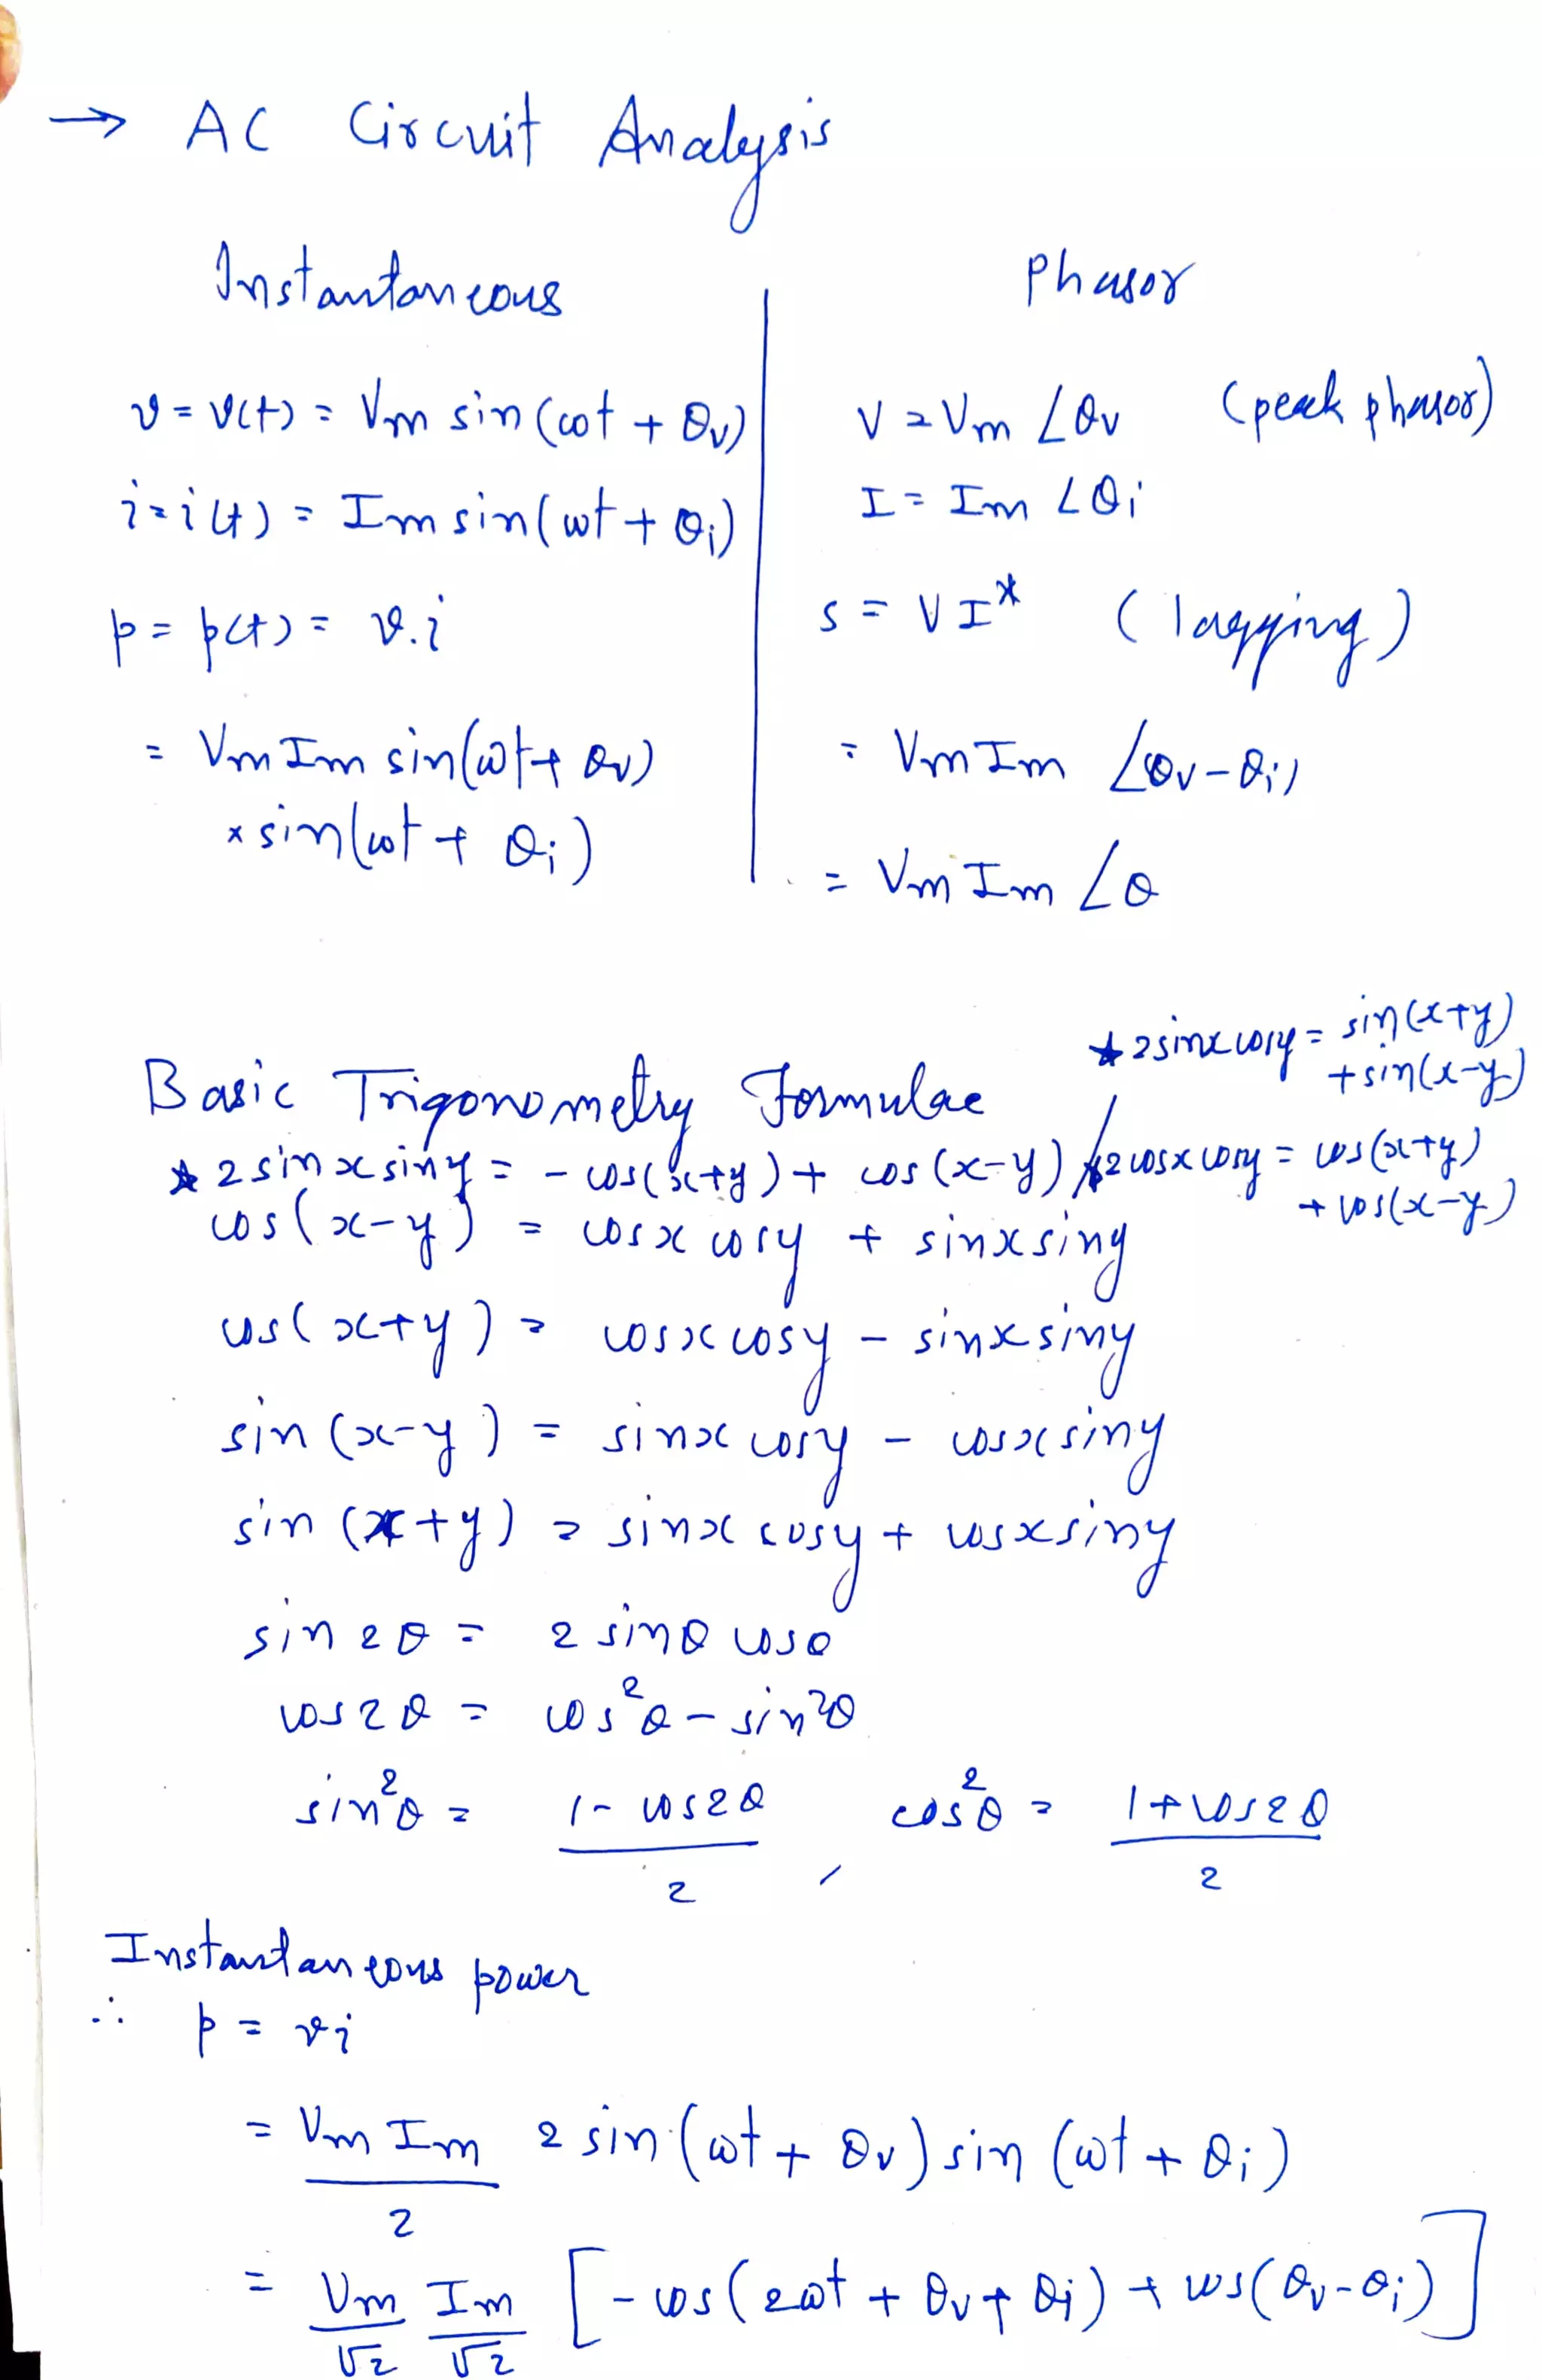 → AC Circuit Analysis
Instantaneous
v = v(t) = Vm sin(ωt + θv)
i = i(t) = Im sin(ωt + θi)
p = p(t) = v.i
= Vm Im sin(ωt + θv)
× sin(ωt + θi)
Phasor
V = Vm ∠θv (peak phasor)
I = Im ∠θi
S = V I* (lagging)
= Vm Im ∠(θv - θi)
= Vm Im ∠θ
★ 2 sinx cosy = sin(x+y)
+ sin(x-y)
Basic Trigonometry Formulae
★ 2 sinx siny = - cos(x+y) + cos(x-y) / ★ 2 cosx cosy = cos(x+y)
+ cos(x-y)
cos(x-y) = cosx cosy + sinx siny
cos(x+y) = cosx cosy - sinx siny
sin(x-y) = sinx cosy - cosx siny
sin(x+y) = sinx cosy + cosx siny
sin2θ = 2 sinθ cosθ
cos2θ = cos²θ - sin²θ
sin²θ = (1 - cos2θ)/2 , cos²θ = (1 + cos2θ)/2
Instantaneous power
∴ p = vi
= Vm Im/2 2 sin(ωt + θv) sin(ωt + θi)
= Vm/√2 Im/√2 [- cos(2ωt + θv + θi) + cos(θv - θi)]